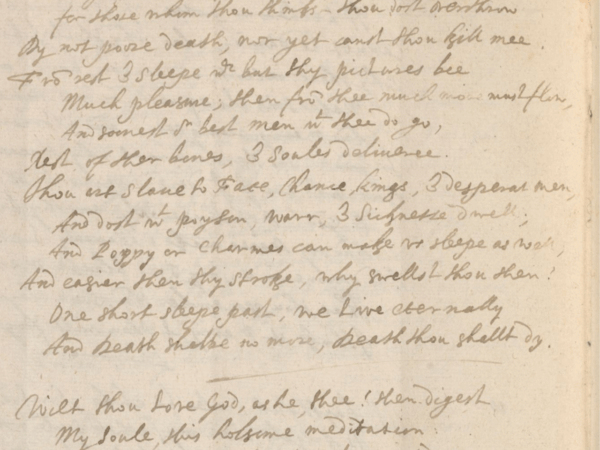 for those whom thou thinkst thou dost overthrow
Dy not poore death, nor yet canst thou kill mee.
Frō rest & sleepe wch but thy pictures bee
Much pleasure; then frō thee much more must flow,
And soonest or best men wt thee do go,
Rest of ther bones, & Soules deliveree.
Thou art slave to Fate, Chance, kings, & desperat men,
And dost wt poyson, warr, & Sicknesse dwell;
And Poppy or charmes can make vs sleepe as well,
And easier then thy stroke, why swellst thou then?
One short sleepe past, we Live eternally
And Death shalbe no more, Death thou shallt dy.
Wilt thou Love God, as he, thee! then digest
My Soule, this holsome meditation